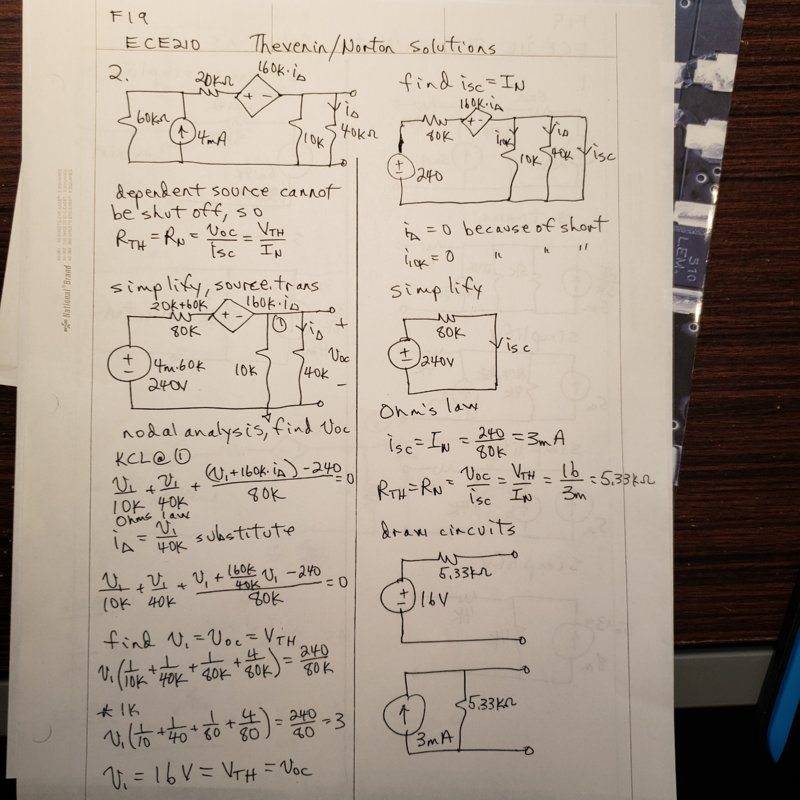 F19
ECE210 Thevenin/Norton Solutions
2.
20kΩ 160k·i∆
60kΩ 4mA 10k i∆ 40kΩ
dependent source cannot
be shut off, so
R_TH = R_N = v_oc/i_sc = V_TH/I_N
simplify, source trans
20k+60k 160k·i∆
80k + - ① i∆ +
4m·60k 10k 40k v_oc
240v -
nodal analysis, find v_oc
KCL@①
v₁/10k + v₁/40k + ((v₁+160k·i∆)-240)/80k = 0
Ohms law
i∆ = v₁/40k substitute
v₁/10k + v₁/40k + (v₁ + 160k/40k v₁ - 240)/80k = 0
find v₁ = v_oc = V_TH
v₁(1/10k + 1/40k + 1/80k + 4/80k) = 240/80k
*1k
v₁(1/10 + 1/40 + 1/80 + 4/80) = 240/80 = 3
v₁ = 16V = V_TH = v_oc
find i_sc = I_N
160k·i∆
80k + - i_10k i∆
240 10k 40k i_sc
i∆ = 0 because of short
i_10k = 0 " " "
simplify
80k
240v i_sc
Ohm's law
i_sc = I_N = 240/80k = 3mA
R_TH = R_N = v_oc/i_sc = V_TH/I_N = 16/3m = 5.33kΩ
draw circuits
5.33kΩ
16V
5.33kΩ
3mA
National®Brand
510
LEM